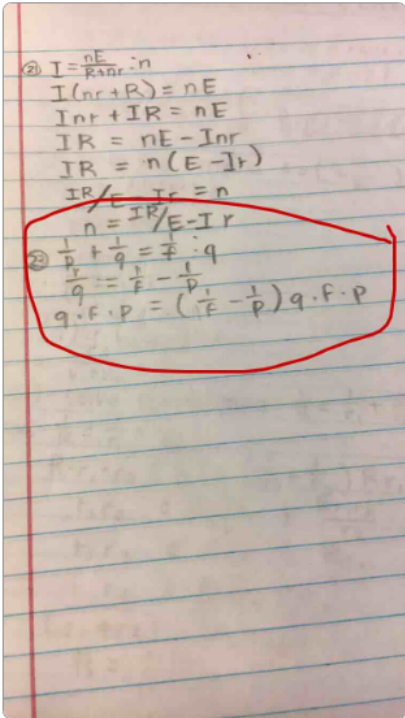 ㉑ I = nE/R+nr : n
I(nr+R) = nE
Inr + IR = nE
IR = nE - Inr
IR = n(E - Ir)
IR/E - Ir = n
n = IR/E - I r
1/p + 1/q = 1/f : q
1/q = 1/f - 1/p
q · f · p = (1/f - 1/p) q · f · p